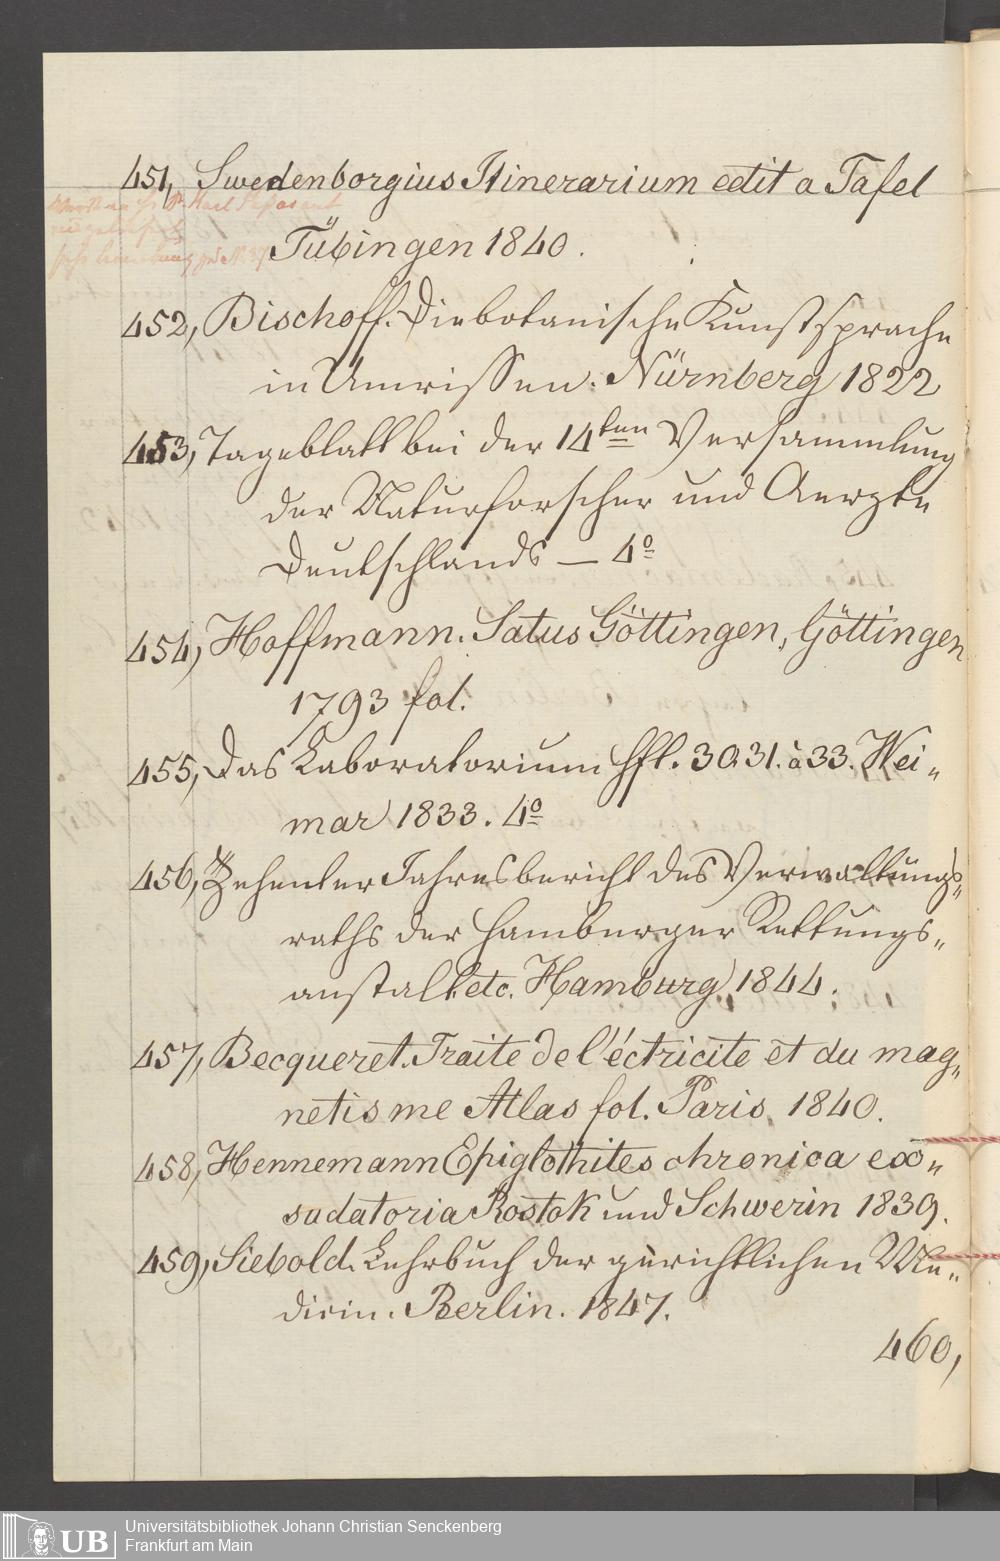 451, Swedenborgius Itinerarium edit a Tafel
Tübingen 1840.
452, Bischoff. Die botanische Kunstsprache
in Umrissen. Nürnberg 1822
453, Tageblatt bei der 14ten Versammlung
der Naturforscher und Aerzte
Deutschlands — 4º
454, Hoffmann. Satus Göttingen, Göttingen
1793 fol.
455, Das Laboratorium Hft. 30. 31. à 33. Wei„
mar 1833. 4º
456, Zehenter Jahresbericht des Verwaltungs„
raths der Hamburger Rettungs„
anstalt etc. Hamburg 1844.
457, Becqueret. Traite de l'éctricite et du mag„
netisme Atlas fol. Paris. 1840.
458, Hennemann Epiglothites chronica ex„
sudatoria Rostok und Schwerin 1839.
459, Siebold. Lehrbuch der gerichtlichen Me„
dicin. Berlin. 1847.
460,
UB
Universitätsbibliothek Johann Christian Senckenberg
Frankfurt am Main